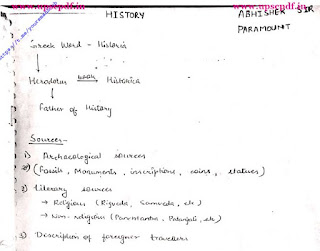 www.upscpdf.in
www.upscpdf.in
HISTORY
ABHISHEK SIR
PARAMOUNT
Greek Word - Historia
Herodotus book Historica
Father of History
Sources-
1) Archaeological sources
(Fossils, Monuments, inscriptions, coins, statues)
2) Literary sources
→ Religious (Rigveda, Samveda, etc)
→ Non-religious (Panchtantra, Patanjali, etc)
3) Description of foreigner travellers